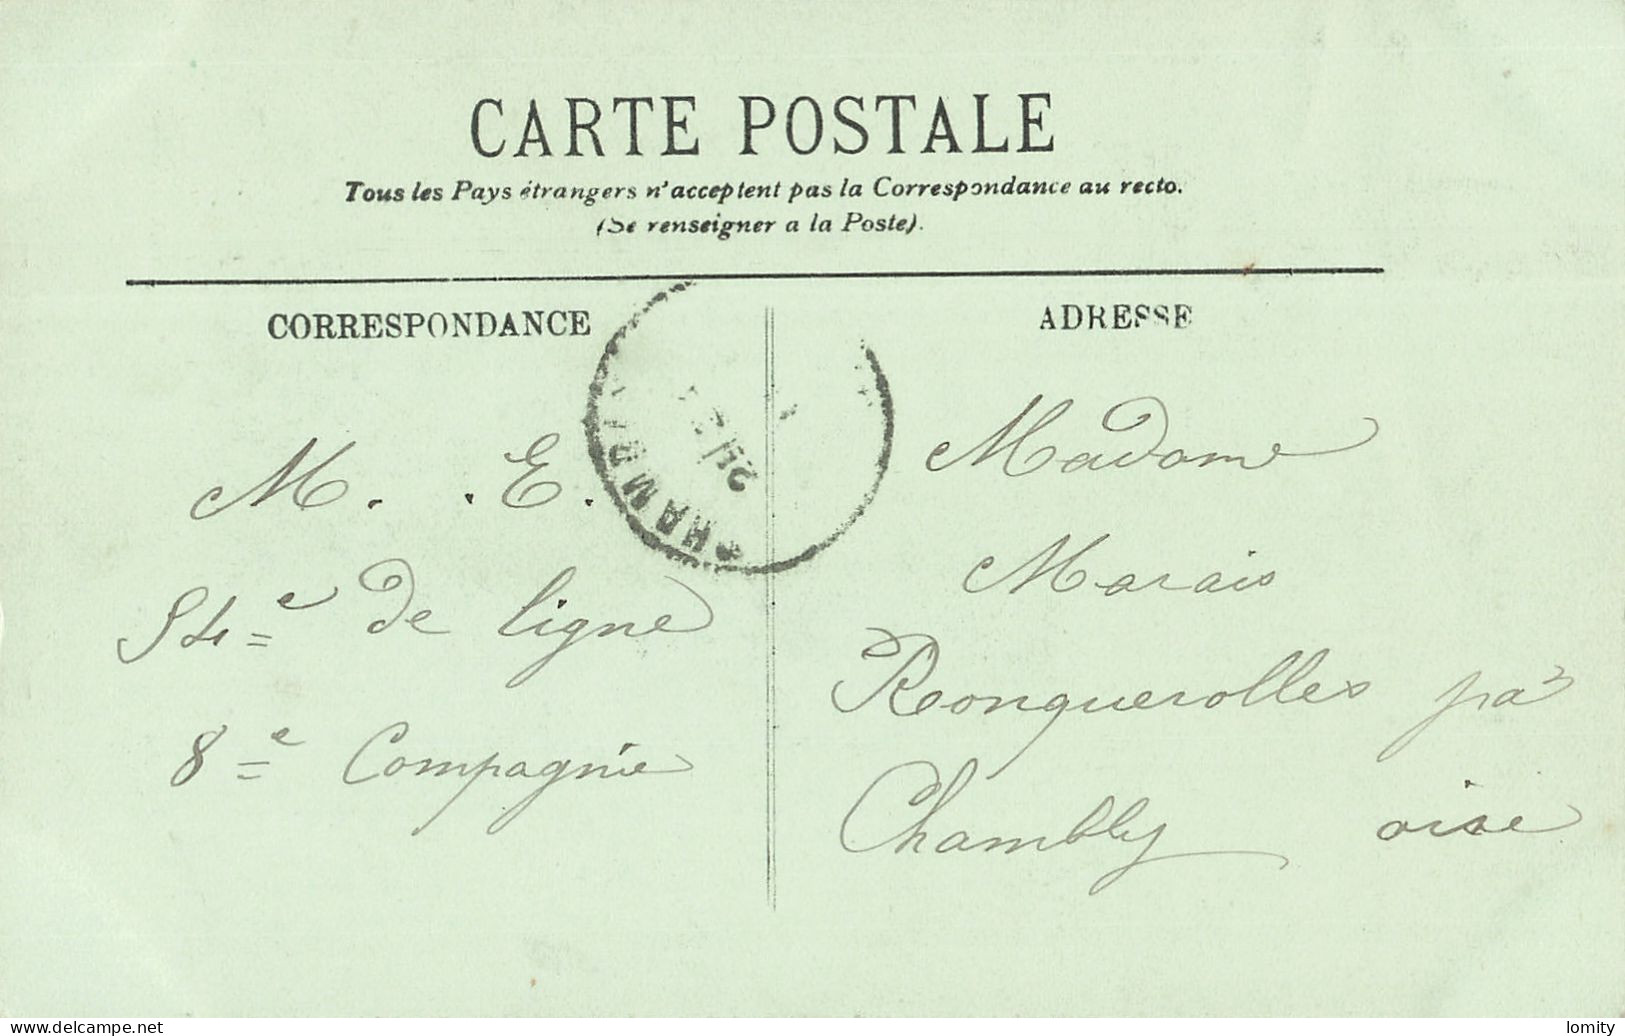 CARTE POSTALE
Tous les Pays étrangers n'acceptent pas la Correspondance au recto.
(Se renseigner a la Poste).
CORRESPONDANCE
ADRESSE
M. . E.
de ligne
8e Compagnie
Madame
Marais
Ronquerolles
Chambly oise
www.delcampe.net
lomity